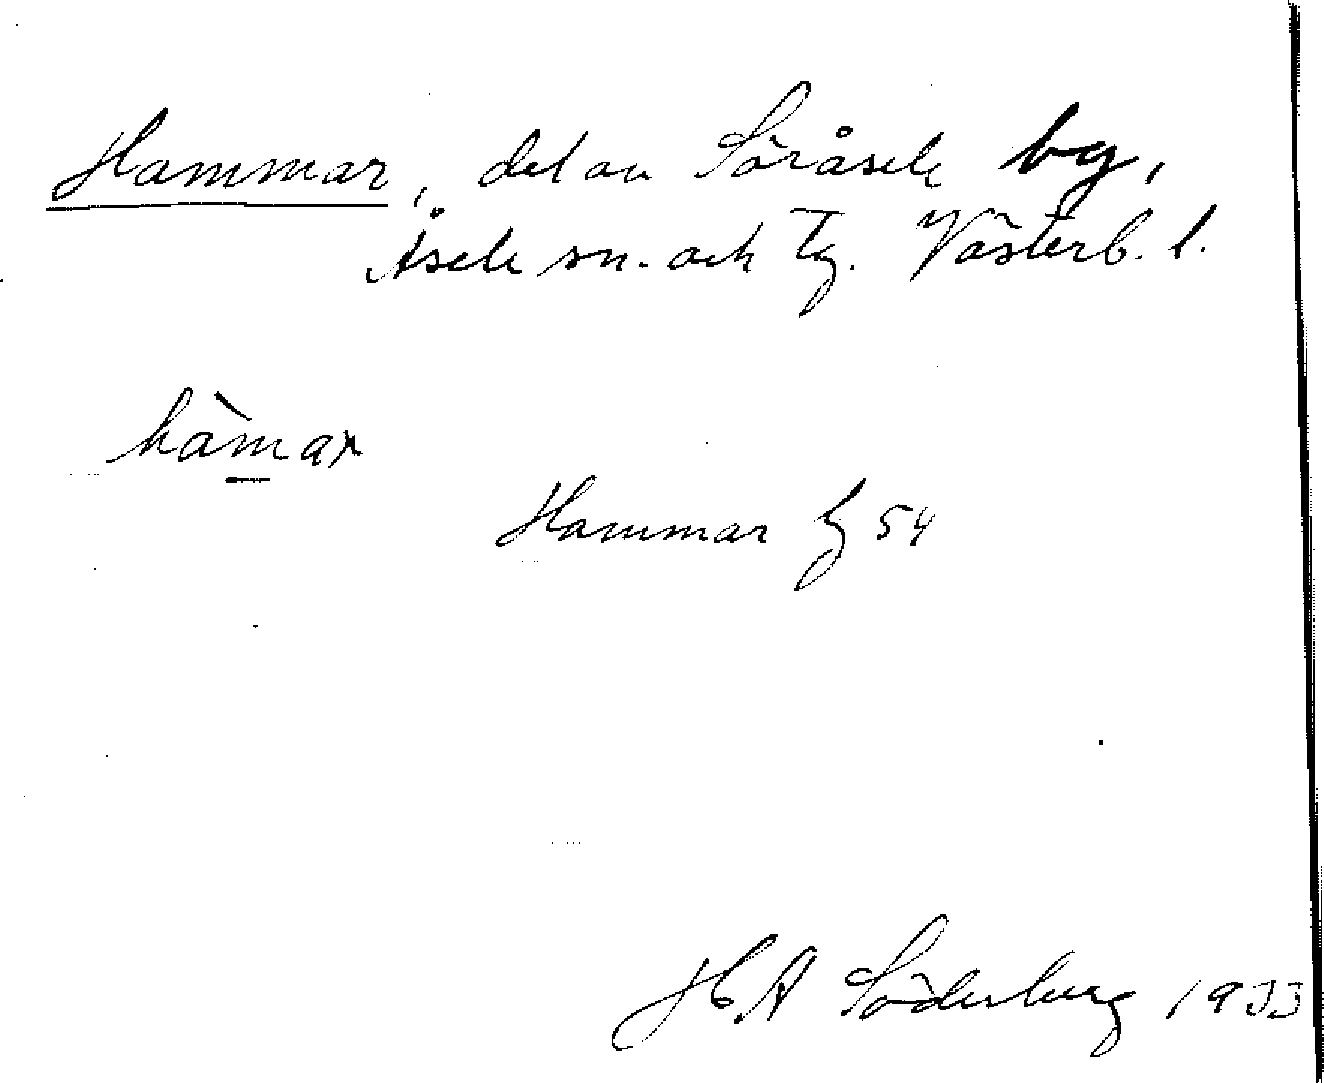 Hammar, del av Söråsele by,
Åsele sn. och tg. Västerb. l.
hàmar
Hammar 54
H A Söderberg 1933